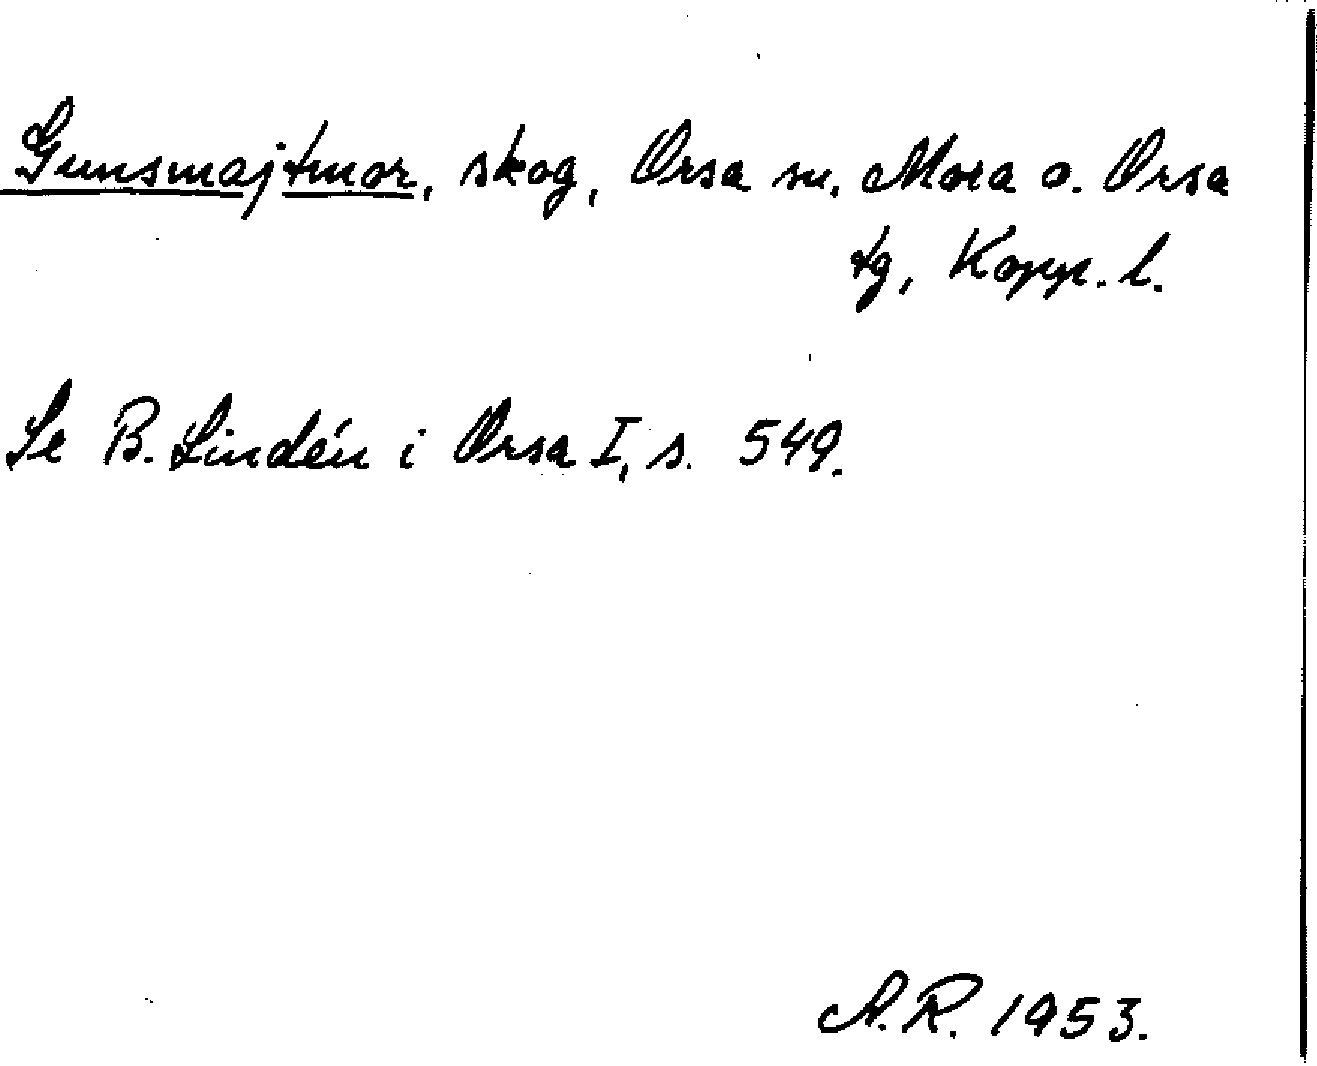 Gunsmajtmor, skog, Orsa sn, Mora o. Orsa
tg, Kopp. l.
Se B. Lindén i Orsa I, s. 549.
A.R. 1953.